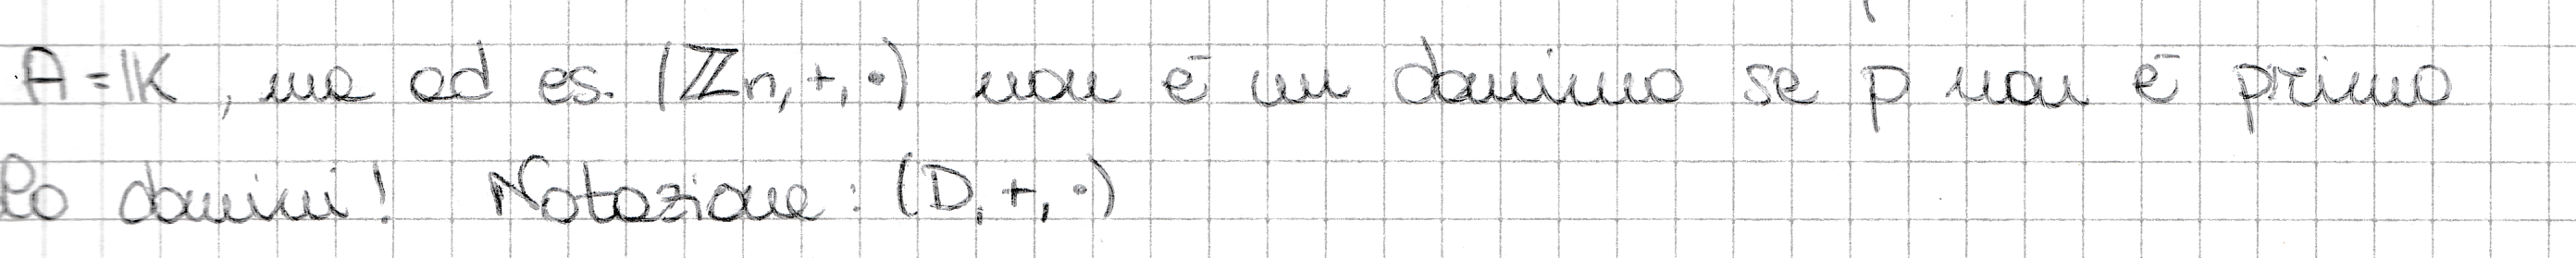 A = 𝕂, ma ad es. (ℤn, +, •) non è un dominio se p non è primo
lo domini! Notazione: (D, +, •)